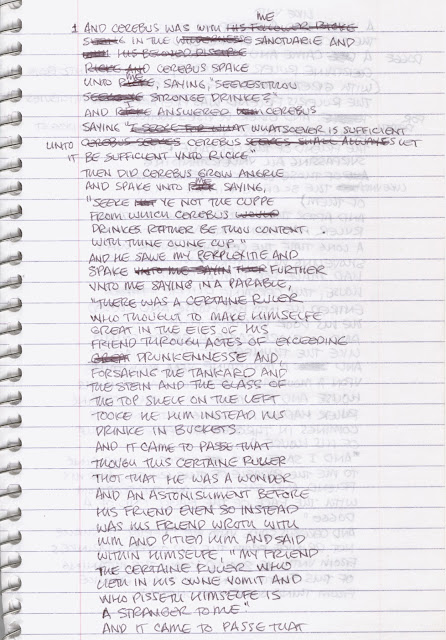 ME
1 AND CEREBUS WAS WITH HIS FOLLOWER RICKE
IN THE WILDERNESSE SANCTUARIE AND
HIS BELOVED DISCIPLE
RICKE AND CEREBUS SPAKE
ME
UNTO RICKE, SAYING, "SEEKEST THOU
STRONGE DRINKE?"
AND RICKE ANSWERED CEREBUS
SAYING "I SEEKE FOR WHAT WHATSOEVER IS SUFFICIENT
UNTO CEREBUS SEEKES CEREBUS SEEKES SHALL ALWAYES LET
IT BE SUFFICIENT VNTO RICKE."
THEN DID CEREBUS GROW ANGRIE
ME
AND SPAKE VNTO RICK SAYING,
"SEEKE NOT YE NOT THE CUPPE
FROM WHICH CEREBUS WOULD
DRINKES RATHER BE THOU CONTENT
WITH THINE OWNE CUP."
AND HE SAWE MY PERPLEXITIE AND
SPAKE VNTO ME SAYIN FURTHER
VNTO ME SAYING IN A PARABLE,
"THERE WAS A CERTAINE RULER
WHO THOUGHT TO MAKE HIMSELFE
GREAT IN THE EIES OF HIS
FRIEND THROUGH ACTES OF EXCEEDING
GREAT DRUNKENNESSE AND,
FORSAKING THE TANKARD AND
THE STEIN AND THE GLASS OF
THE TOP SHELF ON THE LEFT
TOOKE HE HIM INSTEAD HIS
DRINKE IN BUCKETS.
AND IT CAME TO PASSE THAT
THOUGH THIS CERTAINE RULER
THOT THAT HE WAS A WONDER
AND AN ASTONISHMENT BEFORE
HIS FRIEND EVEN SO INSTEAD
WAS HIS FRIEND WROTH WITH
HIM AND PITIED HIM AND SAID
WITHIN HIMSELFE, "MY FRIEND
THE CERTAINE RULER WHO
LIETH IN HIS OWNE VOMIT AND
WHO PISSETH HIMSELFE IS
A STRANGER TO ME."
AND IT CAME TO PASSE THAT